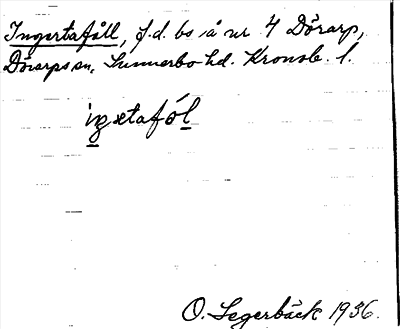 Ingertafåll, f.d. bs å nr 4 Dörarp,
Dörarps sn. Sunnerbo hd. Kronob. l.
O. Segerbäck 1936.